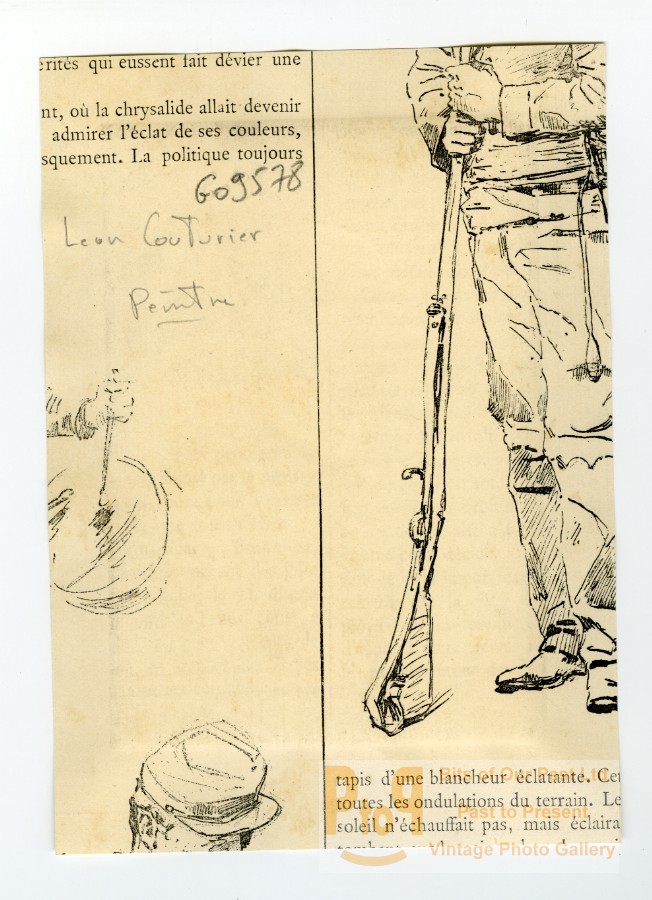 érités qui eussent fait dévier une
nt, où la chrysalide allait devenir
admirer l'éclat de ses couleurs,
squement. La politique toujours
G09578
Leon Couturier
Peintre
tapis d'une blancheur éclatante. Cet
toutes les ondulations du terrain. Le
soleil n'échauffait pas, mais éclaira
Bits of Our Past Ltd
Past to Present
Vintage Photo Gallery